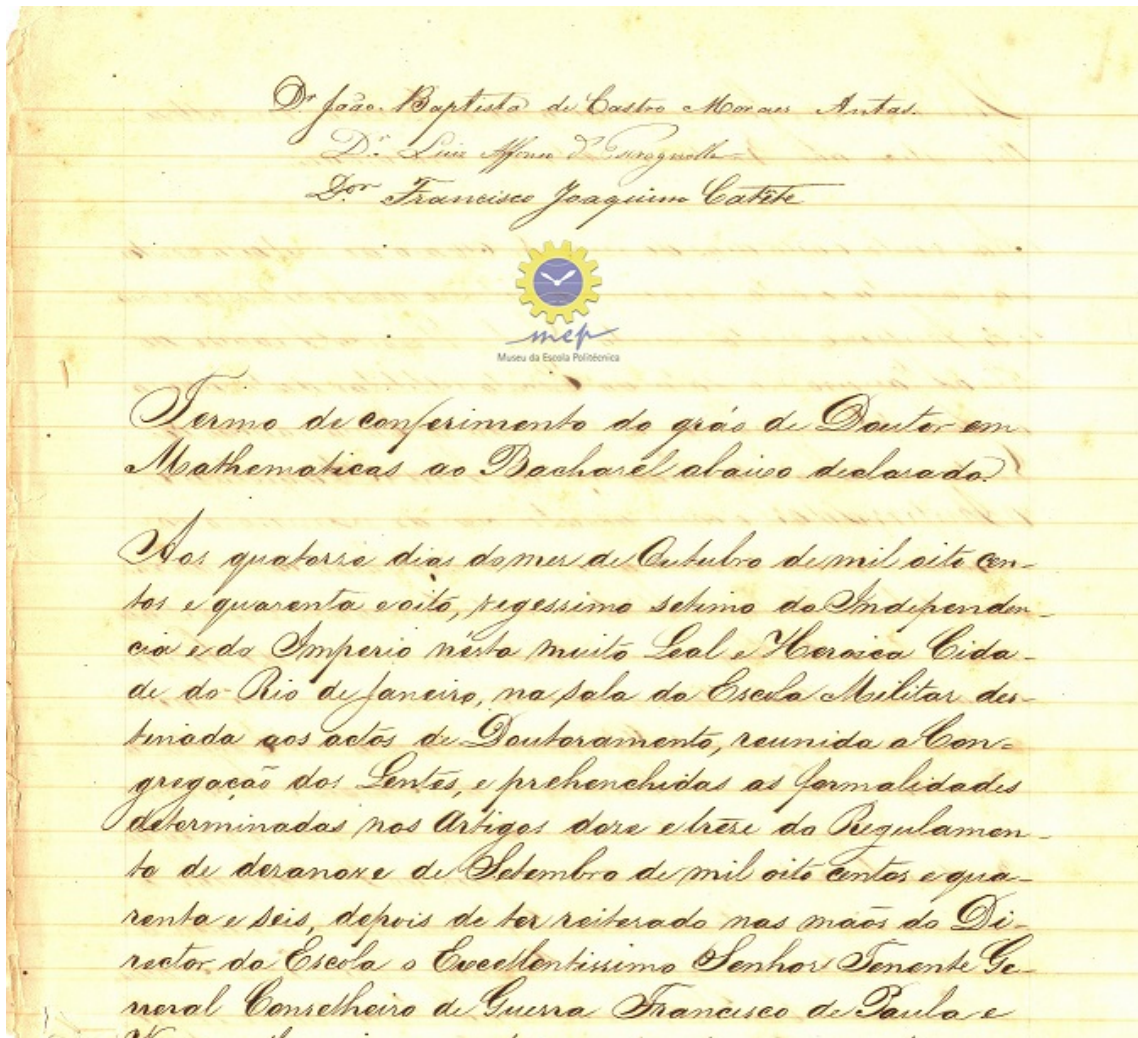 Dr. João Baptista de Castro Moraes Antas.
Dr. Luiz Affonso d'Escragnolle
Dor. Francisco Joaquim Catête
mep
Museu da Escola Politécnica
Termo de conferimento do gráo de Doutor em
Mathematicas ao Bacharel abaixo declarado.
Aos quatorze dias do mez de Outubro de mil oito cen-
tos e quarenta e oito, vegessimo setimo da Independen-
cia e do Imperio nésta muito Leal e Heroica Cida-
de do Rio de Janeiro, na sala da Escola Militar des-
tinada aos actos de Doutoramento, reunida a Con-
gregacão dos Lentes, e prehenchidas as formalidades
determinadas nos Artigos doze e treze do Regulamen-
to de dezanove de Setembro de mil oito centos e qua-
renta e seis, depois de ter reiterado nas mãos do Di-
rector da Escola o Excellentissimo Senhor Tenente Ge-
neral Conselheiro de Guerra Francisco de Paula e